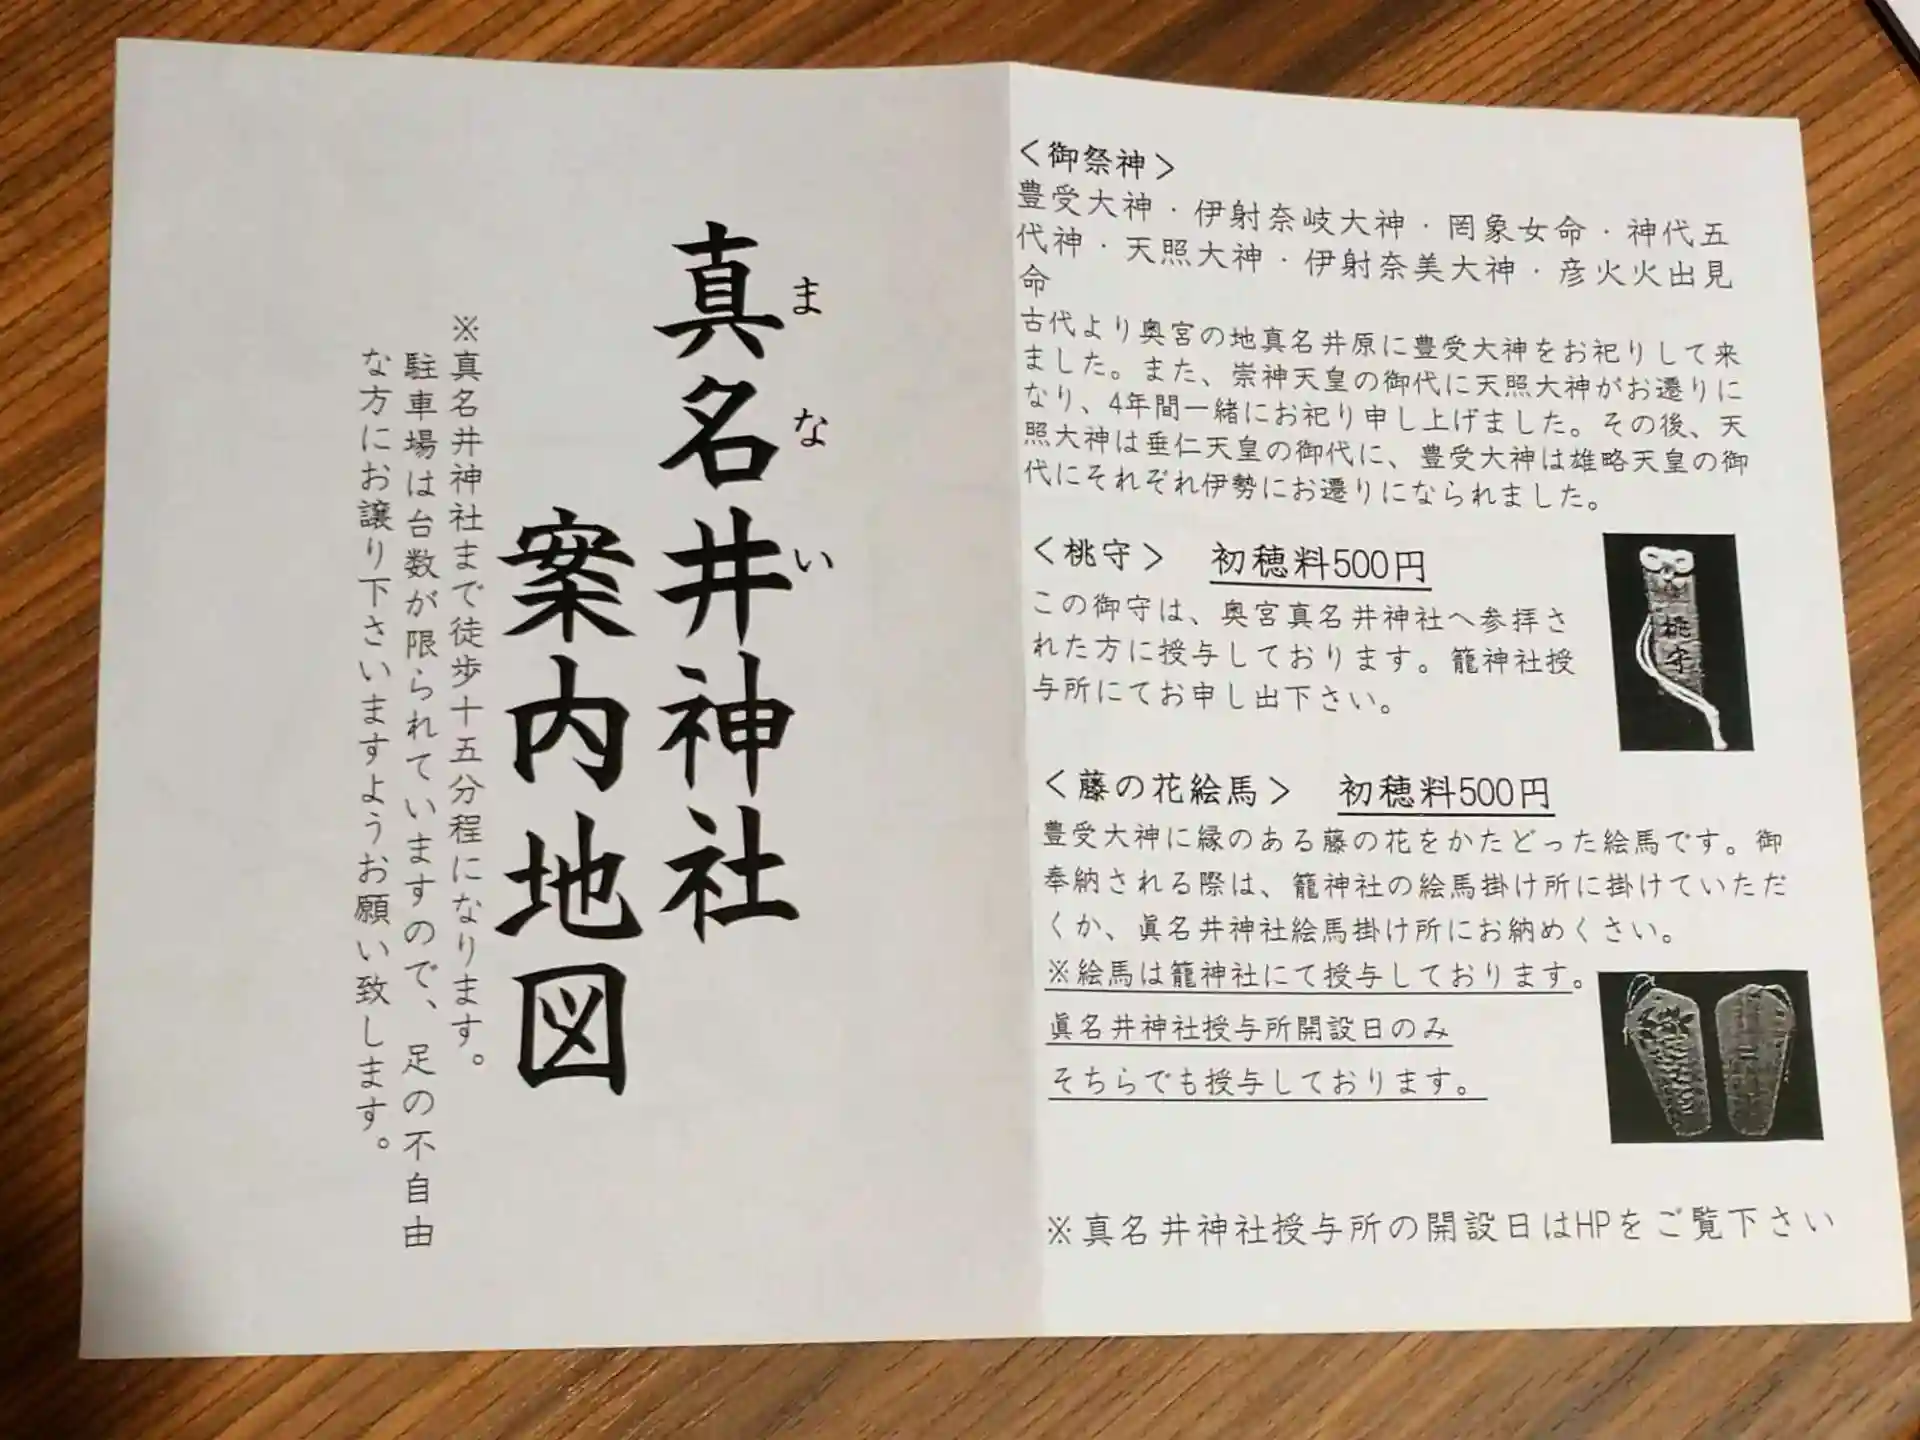 真名井神社
まない
案内地図
※真名井神社まで徒歩十五分程になります。
駐車場は台数が限られていますので、足の不自由
な方にお譲り下さいますようお願い致します。
＜御祭神＞
豊受大神・伊射奈岐大神・罔象女命・神代五
代神・天照大神・伊射奈美大神・彦火火出見
命
古代より奥宮の地真名井原に豊受大神をお祀りして来
ました。また、崇神天皇の御代に天照大神がお遷りに
なり、4年間一緒にお祀り申し上げました。その後、天
照大神は垂仁天皇の御代に、豊受大神は雄略天皇の御
代にそれぞれ伊勢にお遷りになられました。
＜桃守＞ 初穂料500円
この御守は、奥宮真名井神社へ参拝さ
れた方に授与しております。籠神社授
与所にてお申し出下さい。
桃守
＜藤の花絵馬＞ 初穂料500円
豊受大神に縁のある藤の花をかたどった絵馬です。御
奉納される際は、籠神社の絵馬掛け所に掛けていただ
くか、眞名井神社絵馬掛け所にお納めくさい。
※絵馬は籠神社にて授与しております。
眞名井神社授与所開設日のみ
そちらでも授与しております。
※真名井神社授与所の開設日はHPをご覧下さい